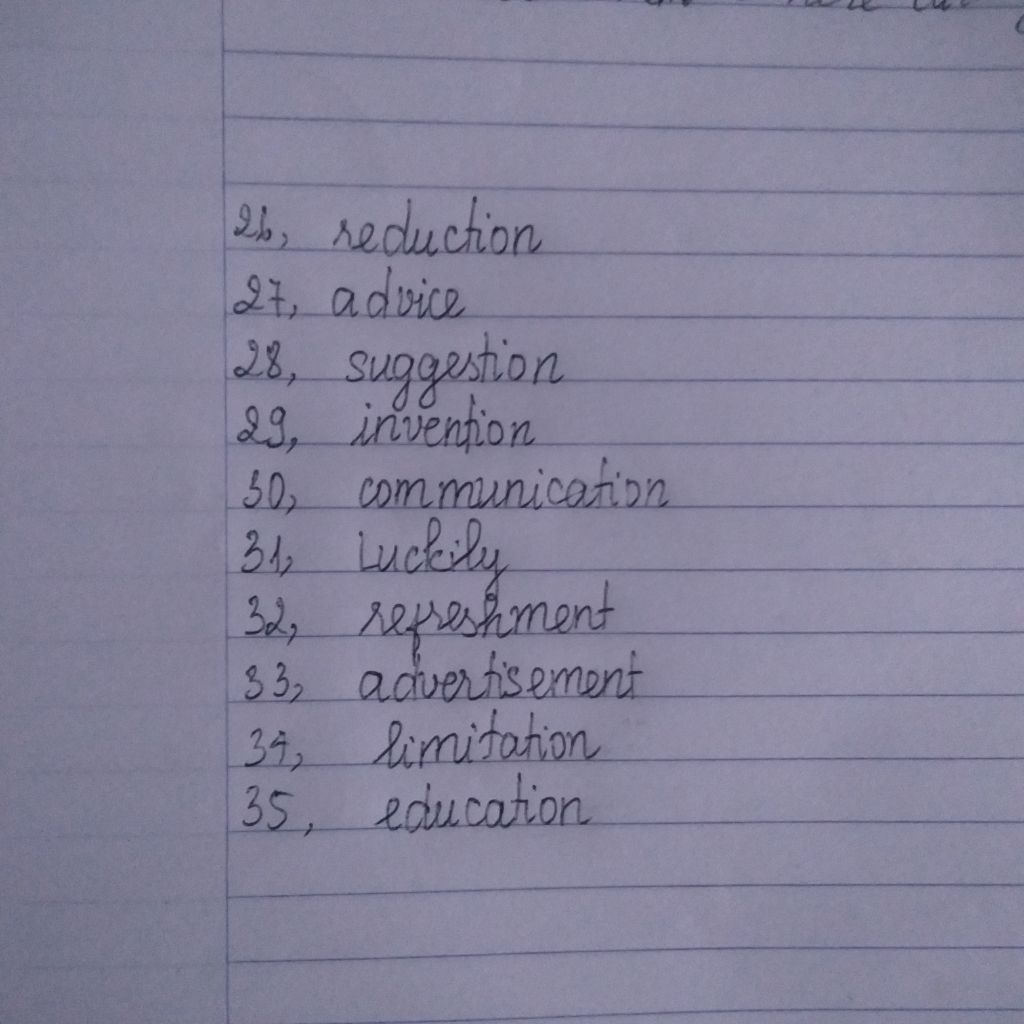 26, reduction
27, advice
28, suggestion
29, invention
30, communication
31, Luckily
32, refreshment
33, advertisement
34, limitation
35, education